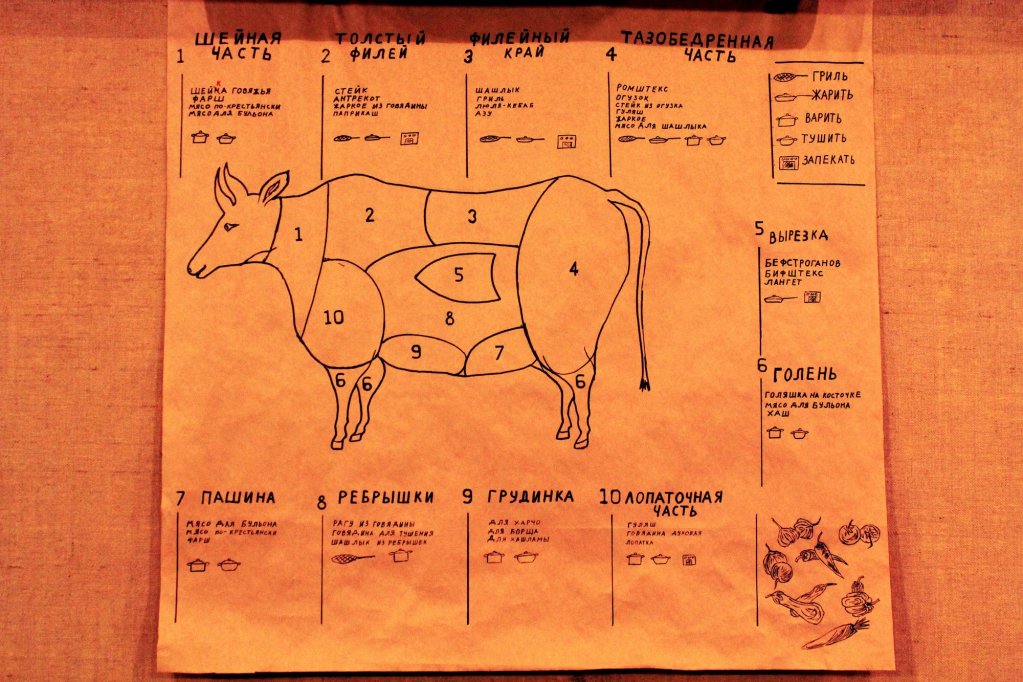 1 ШЕЙНАЯ
ЧАСТЬ
ШЕЙКА ГОВЯЖЬЯ
ФАРШ
МЯСО ПО-КРЕСТЬЯНСКИ
МЯСО ДЛЯ БУЛЬОНА
2 ТОЛСТЫЙ
ФИЛЕЙ
СТЕЙК
АНТРЕКОТ
ЖАРКОЕ ИЗ ГОВЯДИНЫ
ПАПРИКАШ
3 ФИЛЕЙНЫЙ
КРАЙ
ШАШЛЫК
ГРИЛЬ
ЛЮЛЯ-КЕБАБ
АЗУ
4 ТАЗОБЕДРЕННАЯ
ЧАСТЬ
РОМШТЕКС
ОГУЗОК
СТЕЙК ИЗ ОГУЗКА
ГУЛЯШ
ЖАРКОЕ
МЯСО ДЛЯ ШАШЛЫКА
ГРИЛЬ
ЖАРИТЬ
ВАРИТЬ
ТУШИТЬ
ЗАПЕКАТЬ
1
2
3
4
5
10
8
9
7
6
6
6
5 ВЫРЕЗКА
БЕФСТРОГАНОВ
БИФШТЕКС
ЛАНГЕТ
6 ГОЛЕНЬ
ГОЛЯШКА НА КОСТОЧКЕ
МЯСО ДЛЯ БУЛЬОНА
ХАШ
7 ПАШИНА
МЯСО ДЛЯ БУЛЬОНА
МЯСО ПО-КРЕСТЬЯНСКИ
ФАРШ
8 РЕБРЫШКИ
РАГУ ИЗ ГОВЯДИНЫ
ГОВЯДИНА ДЛЯ ТУШЕНИЯ
ШАШЛЫК ИЗ РЕБРЫШЕК
9 ГРУДИНКА
ДЛЯ ХАРЧО
ДЛЯ БОРЩА
ДЛЯ ХАШЛАМЫ
10 ЛОПАТОЧНАЯ
ЧАСТЬ
ГУЛЯШ
ГОВЯДИНА ДУХОВАЯ
ЛОПАТКА